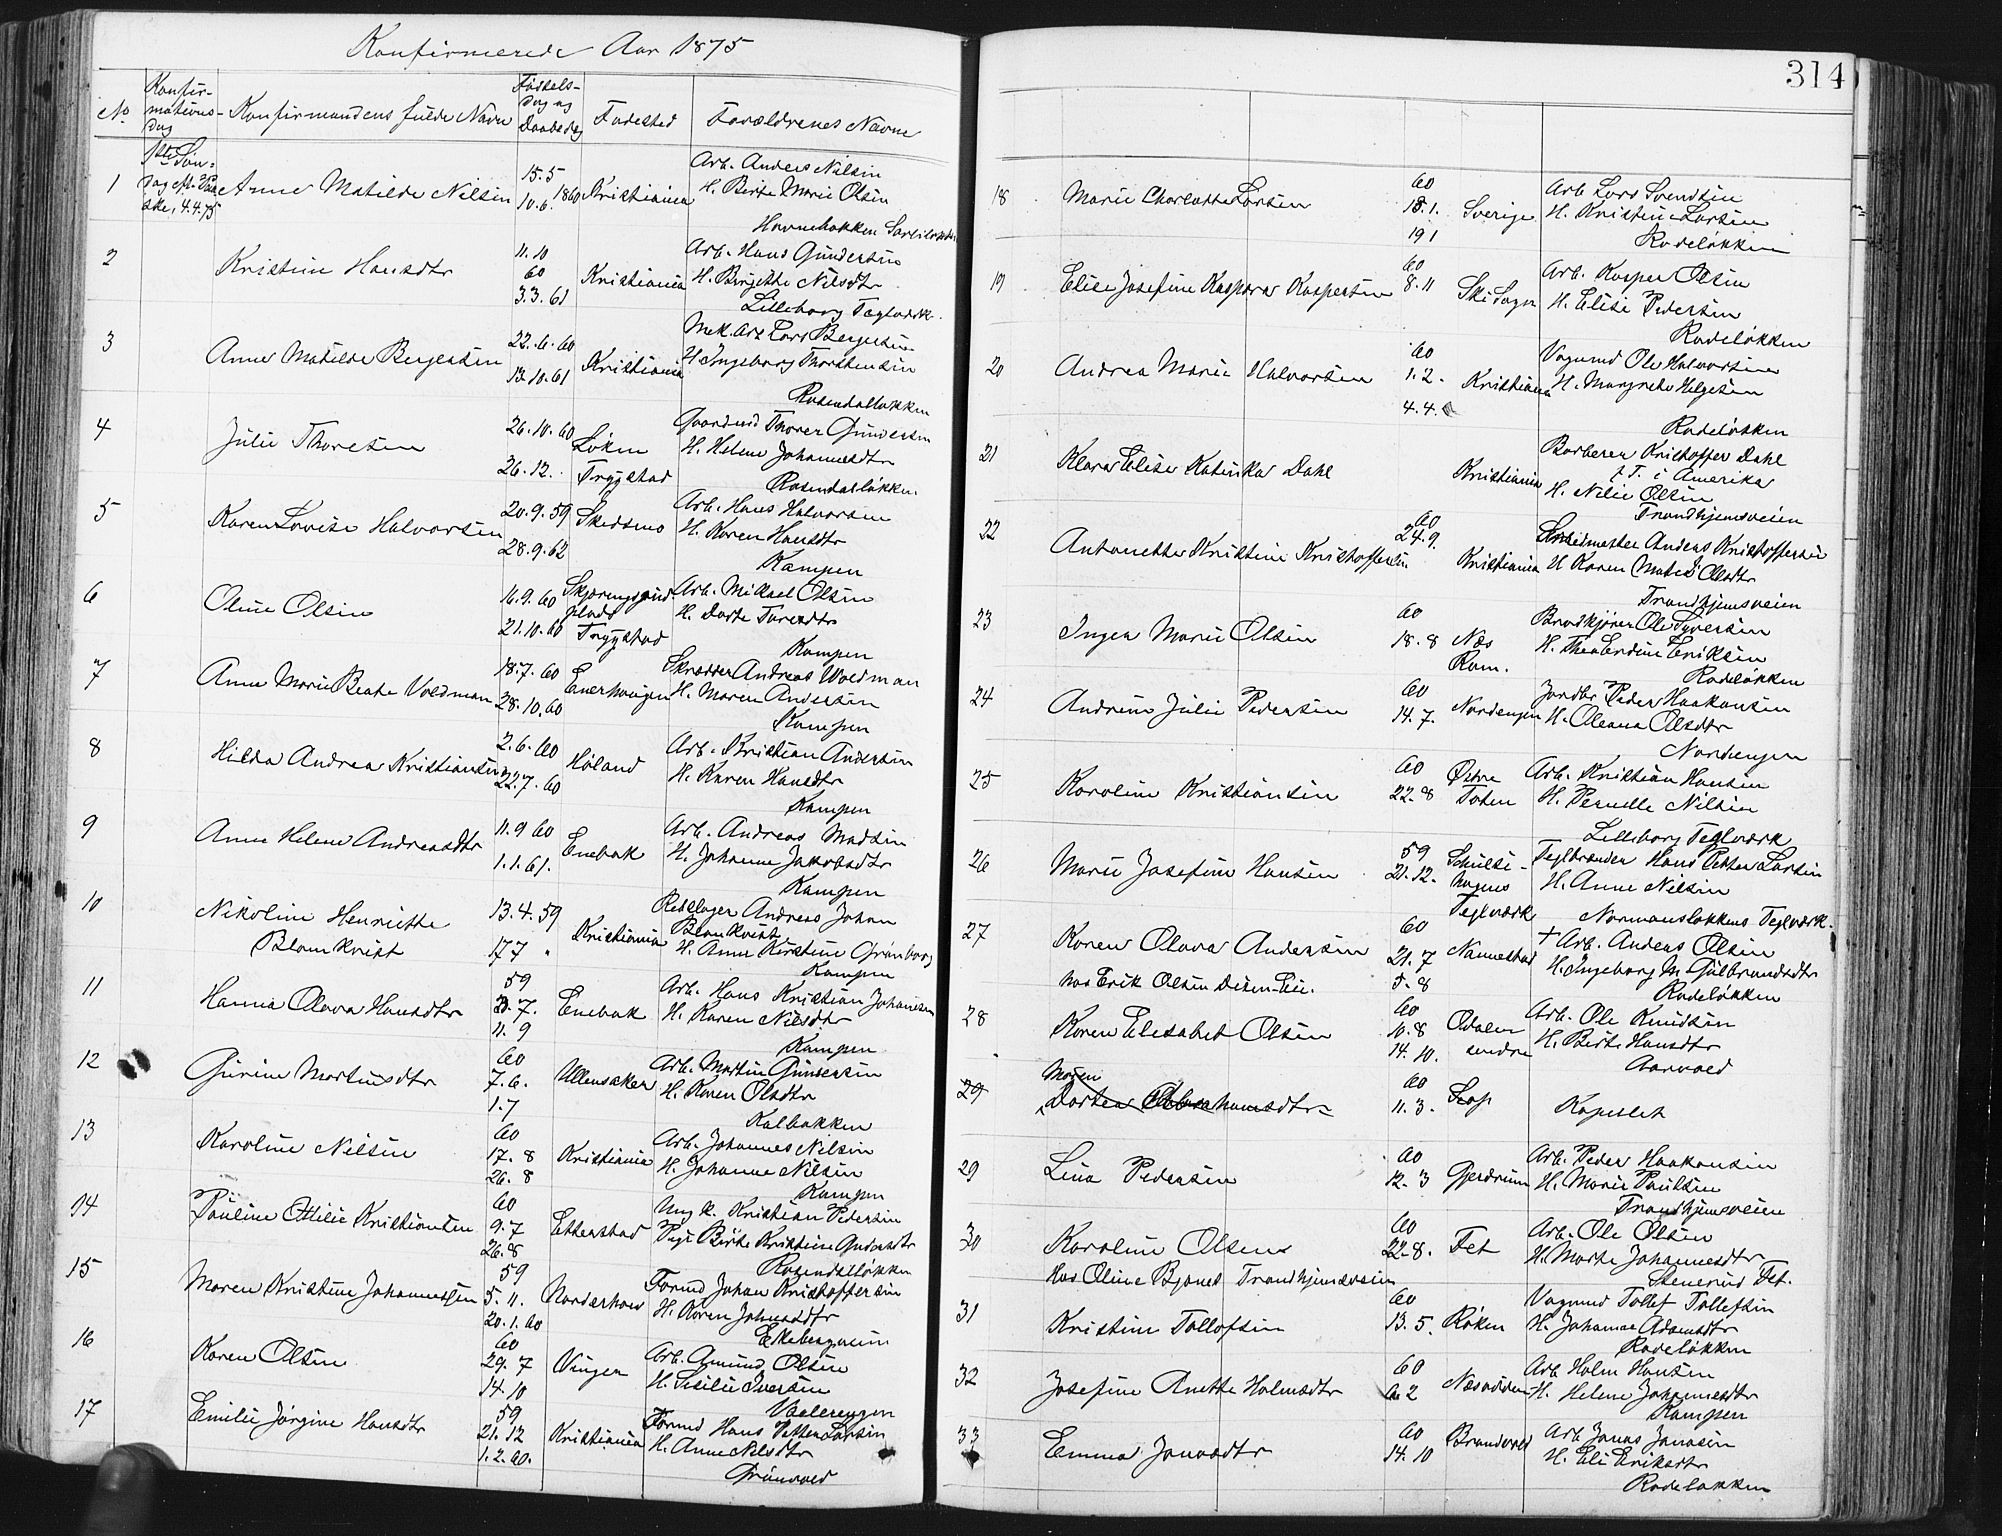 Konfirmerede Aar 1875
No Konfirmations-dag Konfirmandens fulde Navn Fødsels-dag og Daabsdag Fødested Forældrenes Navne
1 1ste Søndag eft. Paaske, 4.4.75 Anne Matilde Nilsen 15.5 10.6. 1860 Kristiania Arb. Anders Nilsen
H. Birte Marie Olsen
2 Kristine Hansdtr 11.10 60 3.3.61 Kristiania Arb. Hans Gundersen
H. Birgitte Nilsdtr
Lilleborg Teglværk.
3 Anne Matilde Bergersen 22.6.60 13.10.61 Kristiania Mek. Arb. Lars Bergersen
H. Ingeborg Thorstensen
Rosendalløkken
4 Julie Thoresen 26.10.60 26.12. Løken Trygstad Gaardmd Thorer Gundersen
H. Helene Johannesdtr
Rosendalløkken
5 Karen Lovise Halvorsen 20.9.59 28.9.62 Skedsmo Arb. Hans Halvorsen
H. Karen Hansdtr
Kampen
6 Oline Olsen 16.9.60 21.10.60 Trygstad Arb. Mikael Olsen
H. Dorte Toresdtr
Kampen
7 Anne Marie Beate Voldman 18.7.60 28.10.60 Enerhaugen Skrædder Andreas Woldman
H. Maren Andersen
Kampen
8 Hilda Andrea Kristiansen 2.6.60 22.7.60 Høland Arb. Kristian Andersen
H. Karen Hansdtr
Kampen
9 Anne Helene Andreasdtr 11.9 60 1.1.61. Enebak Arb. Andreas Madsen
H. Johanne Jakobsdtr
Kampen
10 Nikoline Henriette Blomkvist 13.4.59 17.7 " Kristiania Rebslager Andreas Johan Blomkvist
H. Anne Kirstine Grønborg
Kampen
11 Hanna Olava Hansdtr 59 7. 11.9 Enebak Arb. Hans Kristian Johannesen
H. Karen Nilsdtr
Kampen
12 Gurine Martinsdtr 60 7.6. 1.7 Ullensaker Arb. Martin Gundersen
H. Karen Olsdtr
Kalbakken
13 Karoline Nilsen 60 17.8 26.8 Kristiania Arb. Johannes Nilsen
H. Johanne Nilsen
Kampen
14 Pauline Ottilie Kristiansen 60 9.7 26.8 Etterstad Ung k. Kristian Pedersen
Pige Birte Kristine Gudersdtr
Rosendalløkken
15 Maren Kristine Johannessen 59 5.11. 20.1.60 Norderhov Formd Johan Kristoffersen
H. Karen Johnsdtr
16 Karen Olsen 60 29.7 14.10 Vinger Arb. Amund Olsen
H. Sesilie Iversen
Vaalerengen
17 Emilie Jørgine Hansdtr 59 21.12 1.2.60. Kristiania Formd Hans Petter Larsen
H. Anne Nilsdtr
Grønvold
314
18 Marie Charlotte Larsen 60 18.1. 19 1 Sverige Arb Lars Svendsen
H. Kristine Larsen
Rodeløkken
19 Elise Josefine Kaspara Kaspersen 60 8.11 Ski Sogn Arb. Kasper Olsen
H. Elise Pedersen
Rodeløkken
20 Andrea Marie Halvorsen 60 1.2. 4.4. Kristiania Vognmd Ole Halvorsen
H. Margrethe Helgesen
Rodeløkken
21 Klara Elise Katinka Dahl Kristiania Barberer Kristoffer Dahl
f. T. i Amerika
H. Nilie Olsen
Trondhjemsveien
22 Antonette Kristine Kristoffersen 60 24.9. Kristiania Anders Kristoffersen
H Karen Mate Olsdtr
Trondhjemsveien
23 Inga Marie Olsen 60 18.8 Næs Rom. Brødkjører Ole Syversen
H. Thea Erdine Eriksen
Rodeløkken
24 Andrine Julie Pedersen 60 14.7. Nordengen Jordbr Peder Haakonsen
H. Oleana Olsdtr
Nordengen
25 Karoline Kristiansen 60 22.8 Østre Toten Arb. Kristian Hansen
H. Pernelle Nilsen
Lilleborg Teglværk
26 Marie Josefine Hansen 59 21.12. Schultehagens Teglværk Teglbrænder Hans Petter Larsen
H. Anne Nilsen
Normansløkkens Teglværk.
27 Karen Olava Andersen 60 21.7 5.8 Nannestad † Arb. Anders Olsen
hos Erik Olsen H. Ingeborg M. Gulbrandsdtr
Rodeløkken
28 Karen Elisabet Olsen 60 10.8 14.10. Odalen søndre Arb. Ole Knudsen
H. Birte Hansdtr
Aarvold
29 Maren Dortea 60 11.3. Kapellet
29 Lina Pedersen 60 12.3 Gjerdrum Arb. Peder Haakonsen
H. Marie Paulsen
Trondhjemsveien
30 Karoline Olsen 60 22.8. Fet Arb. Ole Olsen
Hos Oline Trondhjemsveien H. Marte Johannesdtr
Stenerud Fet.
31 Kristine Tollefsen 60 13.5. Røken Vognmd Tollef Tollefsen
H. Johanne Adamsdtr
Rodeløkken
32 Josefine Anette Holmsdtr 60 6.2 Næsodden Arb Holm Hansen
H. Helene Johannesdtr
Kampen
33 Emma Jonasdtr 60 14.10 Brandvold Arb Jonas Jonasen
H. Eli Eriksdtr
Rodeløkken